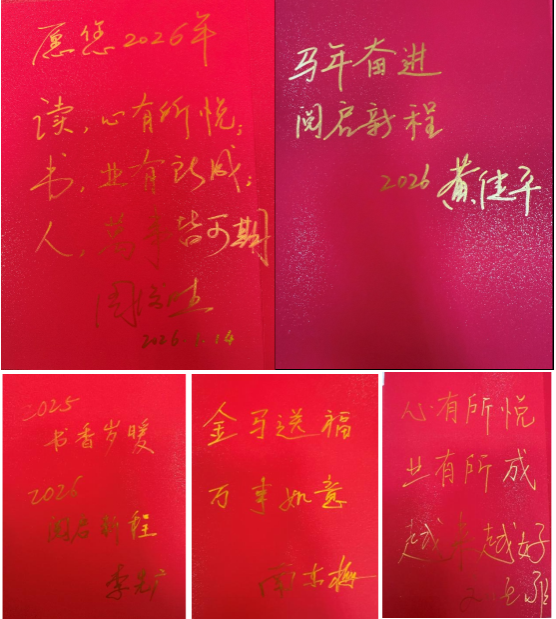 愿您2026年
读，心有所悦；
书，业有所成；
人，萬事皆可期
2026.1.14
马年奋进
阅启新程
2026 黄佳平
2025
书香岁暖
2026
阅启新程
李
金马送福
万事如意
南
梅
心有所悦
业有所成
越来越好